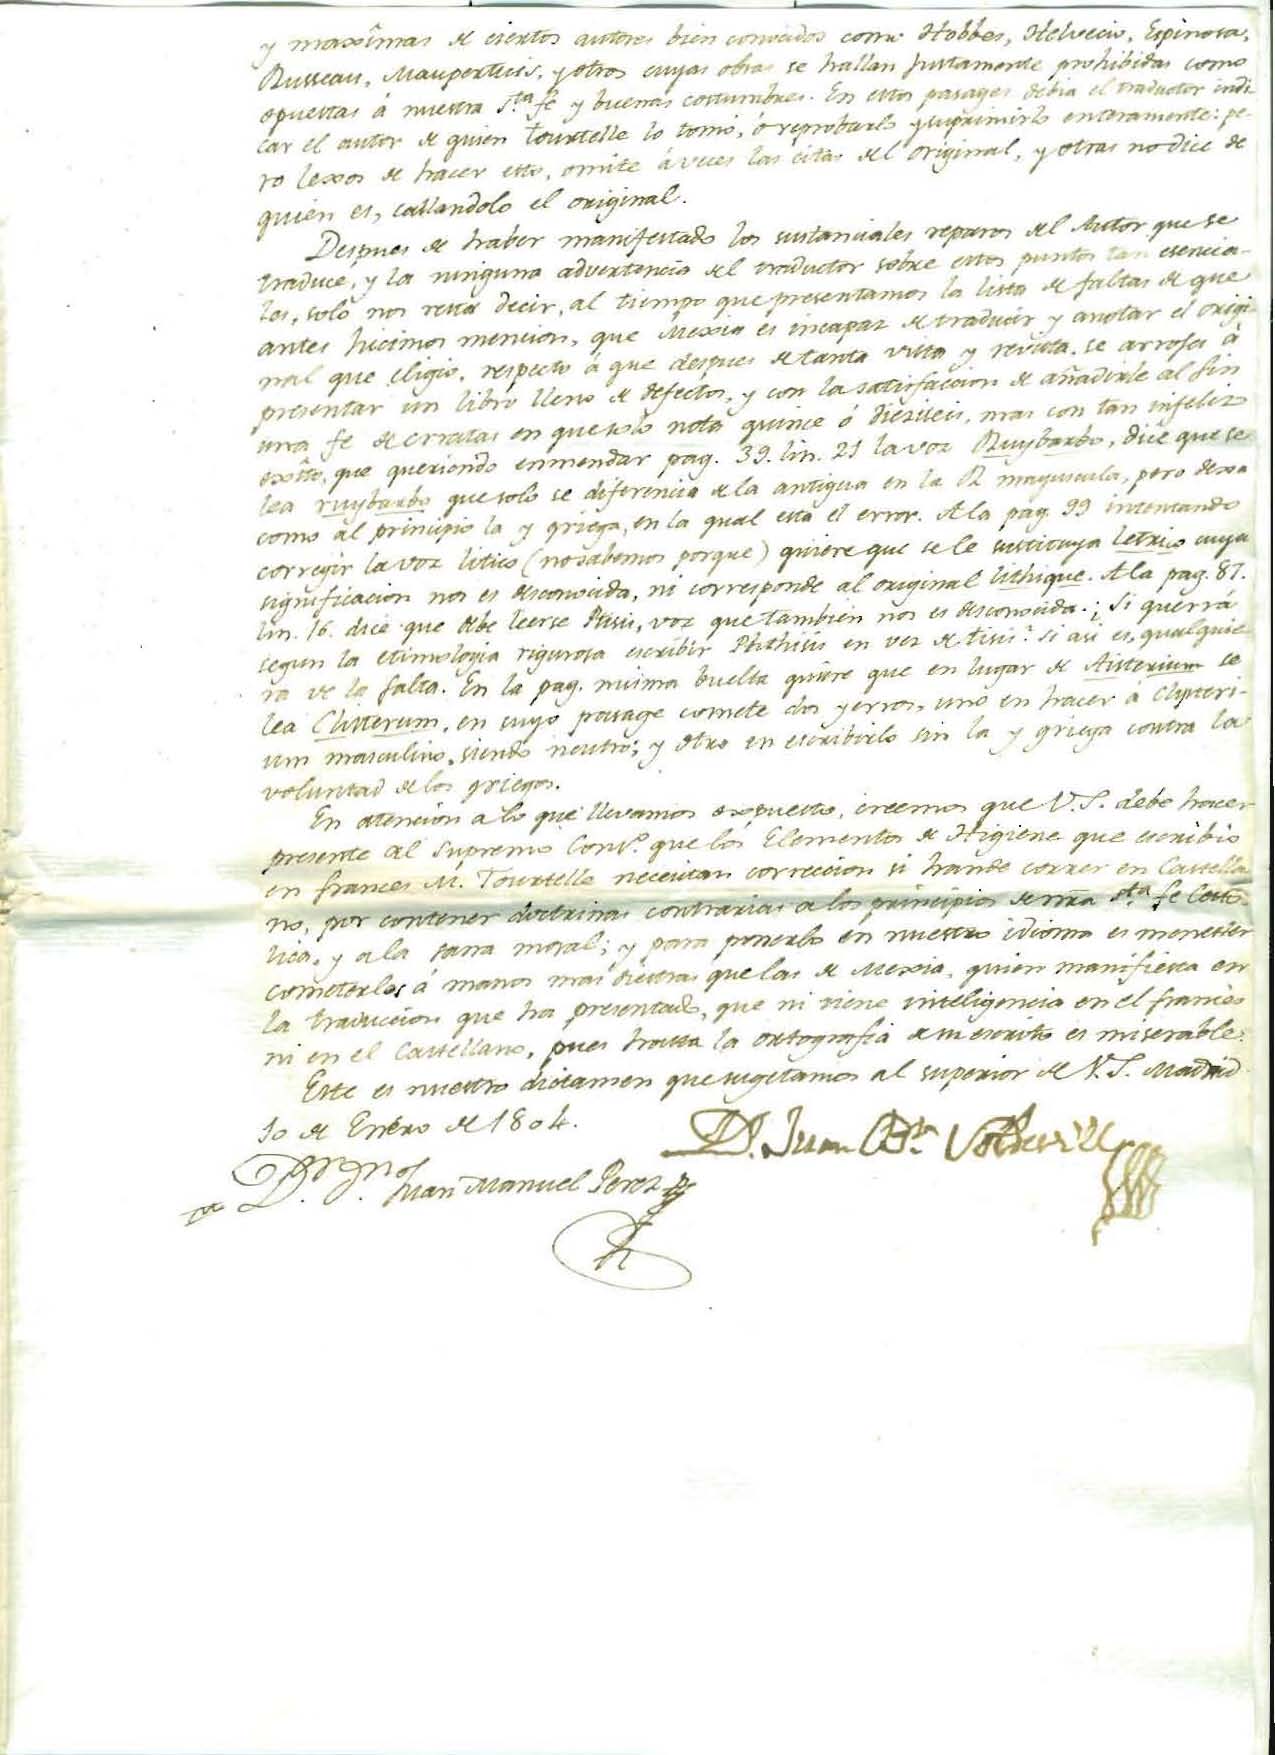 y maxîmas de ciertos autores bien conocidos como Hobbes, Helvecio, Espinosa,
Russeau, Maupertuis, y otros cuyas obras se hallan justamente prohibidas como
opuestas á nuestra S.ta fe y buenas costumbres. En estos pasages debia el traductor indi-
car el autor de quien Tourtelle lo tomó, ó reprobarlo y suprimirlo enteramente: pe-
ro lexos de hacer esto, omite á veces las citas del original, y otras no dice de
quien es, callandolo el original.
Despues de haber manifestado los sustanciales reparos del Autor que se
traduce, y la ninguna advertencia del traductor sobre estos puntos tan esencia-
les, solo nos resta decir, al tiempo que presentamos la lista de faltas de que
antes hicimos mencion, que Mexia es incapaz de traducir y anotar el origi-
nal que eligio, respecto á que despues de tanta vista y revista, se arrojó á
presentar un libro lleno de defectos, y con la satisfaccion de añadirle al fin
una fe de erratas en que solo nota quince ó dieziseis, mas con tan infeliz
exîto, que queriendo enmendar pag. 39. lin. 21 la voz Ruybarbo, dice que se
lea ruybarbo que solo se diferencia de la antigua en la R mayuscula, pero dexa
como al principio la y griega, en la qual esta el error. A la pag. 99 intentando
corregir la voz litico (no sabemos porque) quiere que se le sustituya letrico cuya
significacion nos es desconocida, ni corresponde al original lithique. A la pag. 87.
lin. 16. dice que debe leerse Ptisis, voz que tambien nos es desconocida. ¿Si querrá
segun la etimologia rigurosa escribir Phthisis en vez de tisis? si asi es, qualquie-
ra ve la falta. En la pag. misma buelta quiere que en lugar de Aisterium se
lea Clisterum, en cuyo pasage comete dos yerros, uno en hacer á clysteri-
um masculino, siendo neutro; y otro en escribirlo sin la y griega contra la
voluntad de los griegos.
En atencion a lo que llevamos expuesto, creemos que V.S. debe hacer
presente al Supremo Cons.º que los Elementos de Higiene que escribió
en frances M. Tourtelle necesitan correccion si han de correr en Castella-
no, por contener doctrinas contrarias a los principios de nra S.ta fe Cato-
lica, y a la sana moral; y para ponerlos en nuestro idioma es menester
cometerlos á manos mas diestras que las de Mexia, quien manifiesta en
la traduccion que ha presentado, que ni tiene inteligencia en el frances
ni en el Castellano, pues hasta la ortografia de su escrito es miserable.
Este es nuestro dictamen que sugetamos al superior de V.S. Madrid
10 de Enero de 1804.
D. Juan B.ta
Juan Manuel Perez